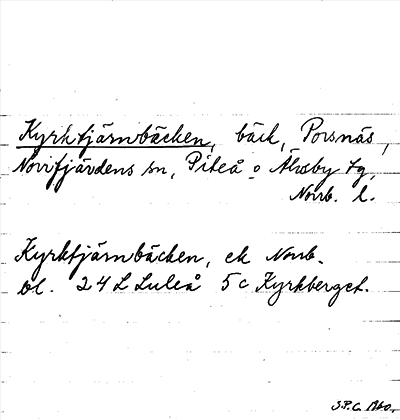 Kyrktjärnbäcken, bäck, Porsnäs,
Norrfjärdens sn, Piteå o Älvsby tg,
Norrb. l.
Kyrktjärnbäcken, ek Norrb.
bl. 24 L Luleå 5c Kyrkberget.